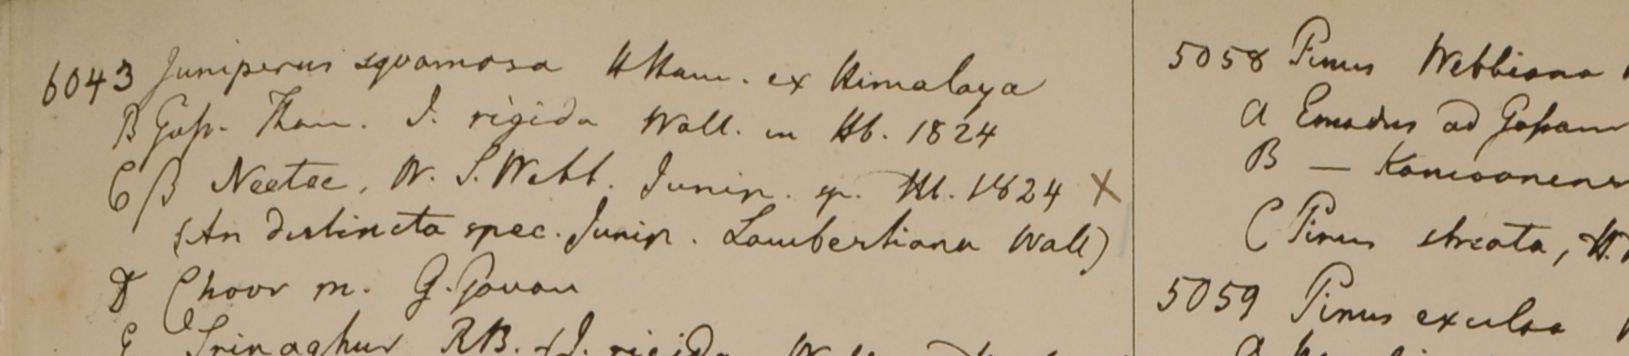 6043 Juniperus squamosa HHam. ex Himalaya
B Goss. Than. J. rigida Wall. in Hb. 1824
C β Neetee, W. S. Webb. Junip. sp. Hb. 1824 X
(An distincta spec. Junip. Lambertiana Wall)
D Choor m. G. Govan
E Srinaghur RB. (J. rigida
5058 Pinus Webbiana
A Emodus ad Gossain
B — Kamoonens
C Pinus striata, H.
5059 Pinus excelsa